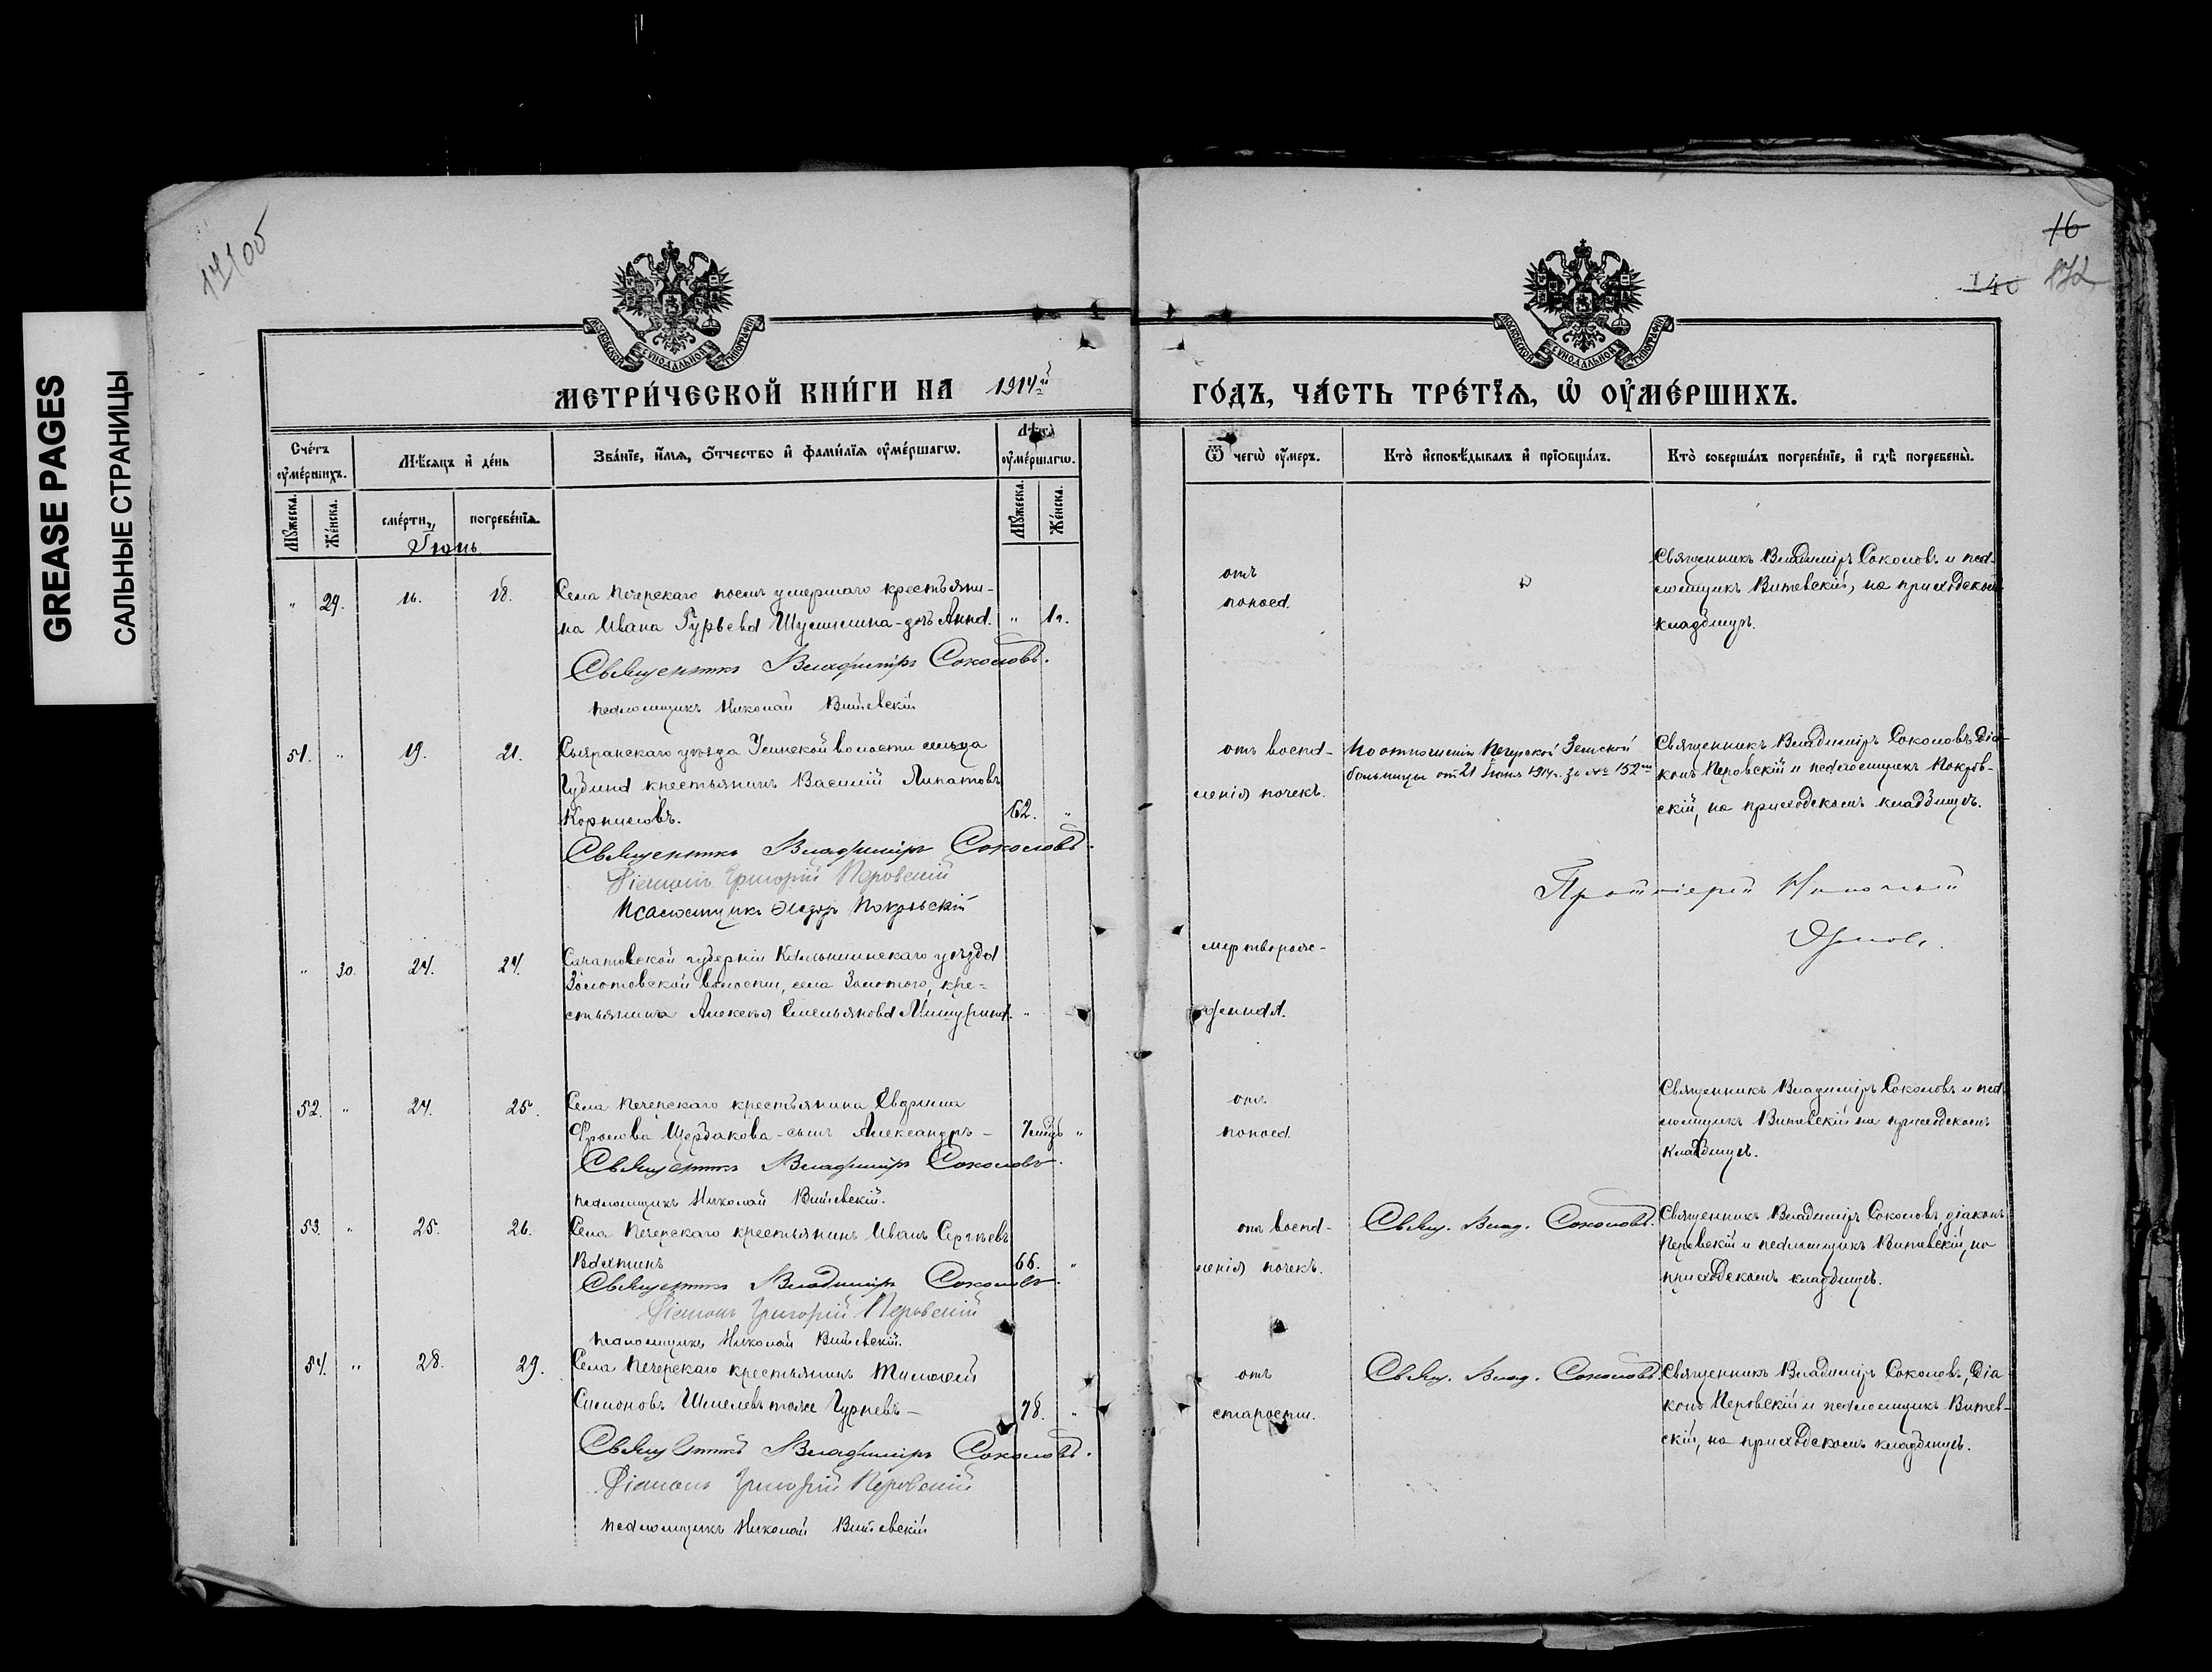 GREASE PAGES
САЛЬНЫЕ СТРАНИЦЫ
16
140
172
МЕТРИ́ЧЕСКОЙ КНИ́ГИ НА 1914й
ГО́ДЪ, ЧА́СТЬ ТРЕ́ТЇѦ, Ѡ҆ ОУ҆МЕ́РШИХЪ.
Сче́тъ оу҆ме́ршихъ.
Мѣ́сяцъ и҆ де́нь
Зва́нїе, и҆́мѧ, ѻ҆́тчество и҆ фами́лїѧ оу҆ме́ршагѡ.
Лѣ́та оу҆ме́ршагѡ.
Ѿ чегѡ̀ оу҆́меръ.
Кто̀ и҆сповѣ́дывалъ и҆ прїѡбща́лъ.
Кто̀ соверша́лъ погребе́нїе, и҆ гдѣ̀ погребены̀.
Мꙋ́жеска.
Же́нска.
сме́рти,
погребе́нїѧ.
Мꙋ́жеска.
Же́нска.
Іюнь
" 29. 16. 18. Села Печерскаго послѣ умершаго крестьяни-
на Ивана Гурьева Шушилина - дочь Анна. " 1 г.
Священникъ Владиміръ Соколовъ.
псаломщикъ Николай Витевскій
отъ
поноса.
Священникъ Владиміръ Соколовъ и пса-
ломщикъ Витевскій, на приходскомъ
кладбищѣ.
51. " 19. 21. Сызранскаго уѣзда Усинской волости сельца
Губина крестьянинъ Василій Липатовъ
Корниловъ. 62. "
Священникъ Владиміръ Соколовъ.
Діаконъ Григорій Перовскій
Псаломщикъ Ѳедоръ Покровскій
отъ воспа-
ленія почекъ.
По отношенію Печерской Земской
больницы от 21 Іюня 1914 г. за № 152
Священникъ Владиміръ Соколовъ, Діа-
конъ Перовскій и псаломщикъ Покров-
скій, на приходскомъ кладбищѣ.
Протоіерей Николай
" 30. 24. 24. Саратовской губерніи Камышинскаго уѣзда
Золотовской волости, села Золотого, кре-
стьянина Алексѣя Емельянова Мишурина. "
мертворож-
денная.
52. " 24. 25. Села Печерскаго крестьянина Евдокима
Фролова Щербакова - сынъ Александръ - 7 мѣс. "
Священникъ Владиміръ Соколовъ.
псаломщикъ Николай Витевскій.
отъ
поноса.
Священникъ Владиміръ Соколовъ и пса-
ломщикъ Витевскій на приходскомъ
кладбищѣ.
53. " 25. 26. Села Печерскаго крестьянинъ Иванъ Сергѣевъ
66. "
Священникъ Владиміръ Соколовъ.
Діаконъ Григорій Перовскій
псаломщикъ Николай Витевскій.
отъ воспа-
ленія почекъ.
Свящ. Влад. Соколовъ.
Священникъ Владиміръ Соколовъ, діаконъ
Перовскій и псаломщикъ Витевскій, на
приходскомъ кладбищѣ.
54. " 28. 29. Села Печерскаго крестьянинъ Тимофей
Симоновъ Шмелевъ тоже Гурьевъ - 78. "
Священникъ Владиміръ Соколовъ.
Діаконъ Григорій Перовскій
псаломщикъ Николай Витевскій
отъ
старости.
Свящ. Влад. Соколовъ.
Священникъ Владиміръ Соколовъ, Діа-
конъ Перовскій и псаломщикъ Витев-
скій, на приходскомъ кладбищѣ.